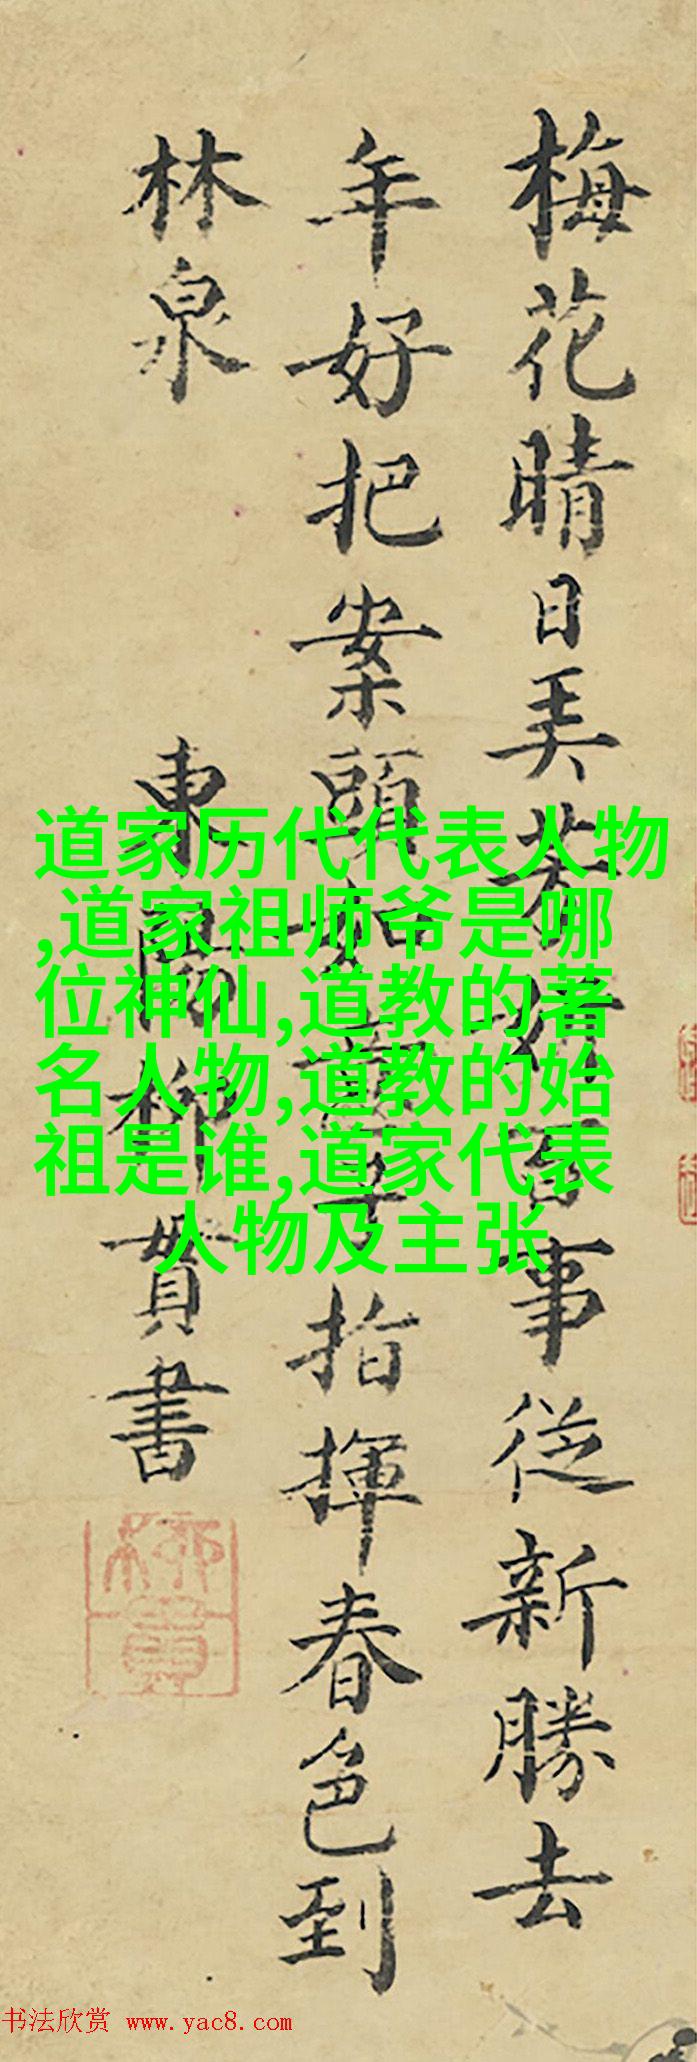 梅花晴日美百事從新勝去
年好把案頭如意子指揮春色到
林泉
東陽柳貫書
柳貫
道家历代代表人物
,道家祖师爷是哪
位神仙,道教的著
名人物,道教的始
祖是谁,道家代表
人物及主张
书法欣赏 www.yac8.com